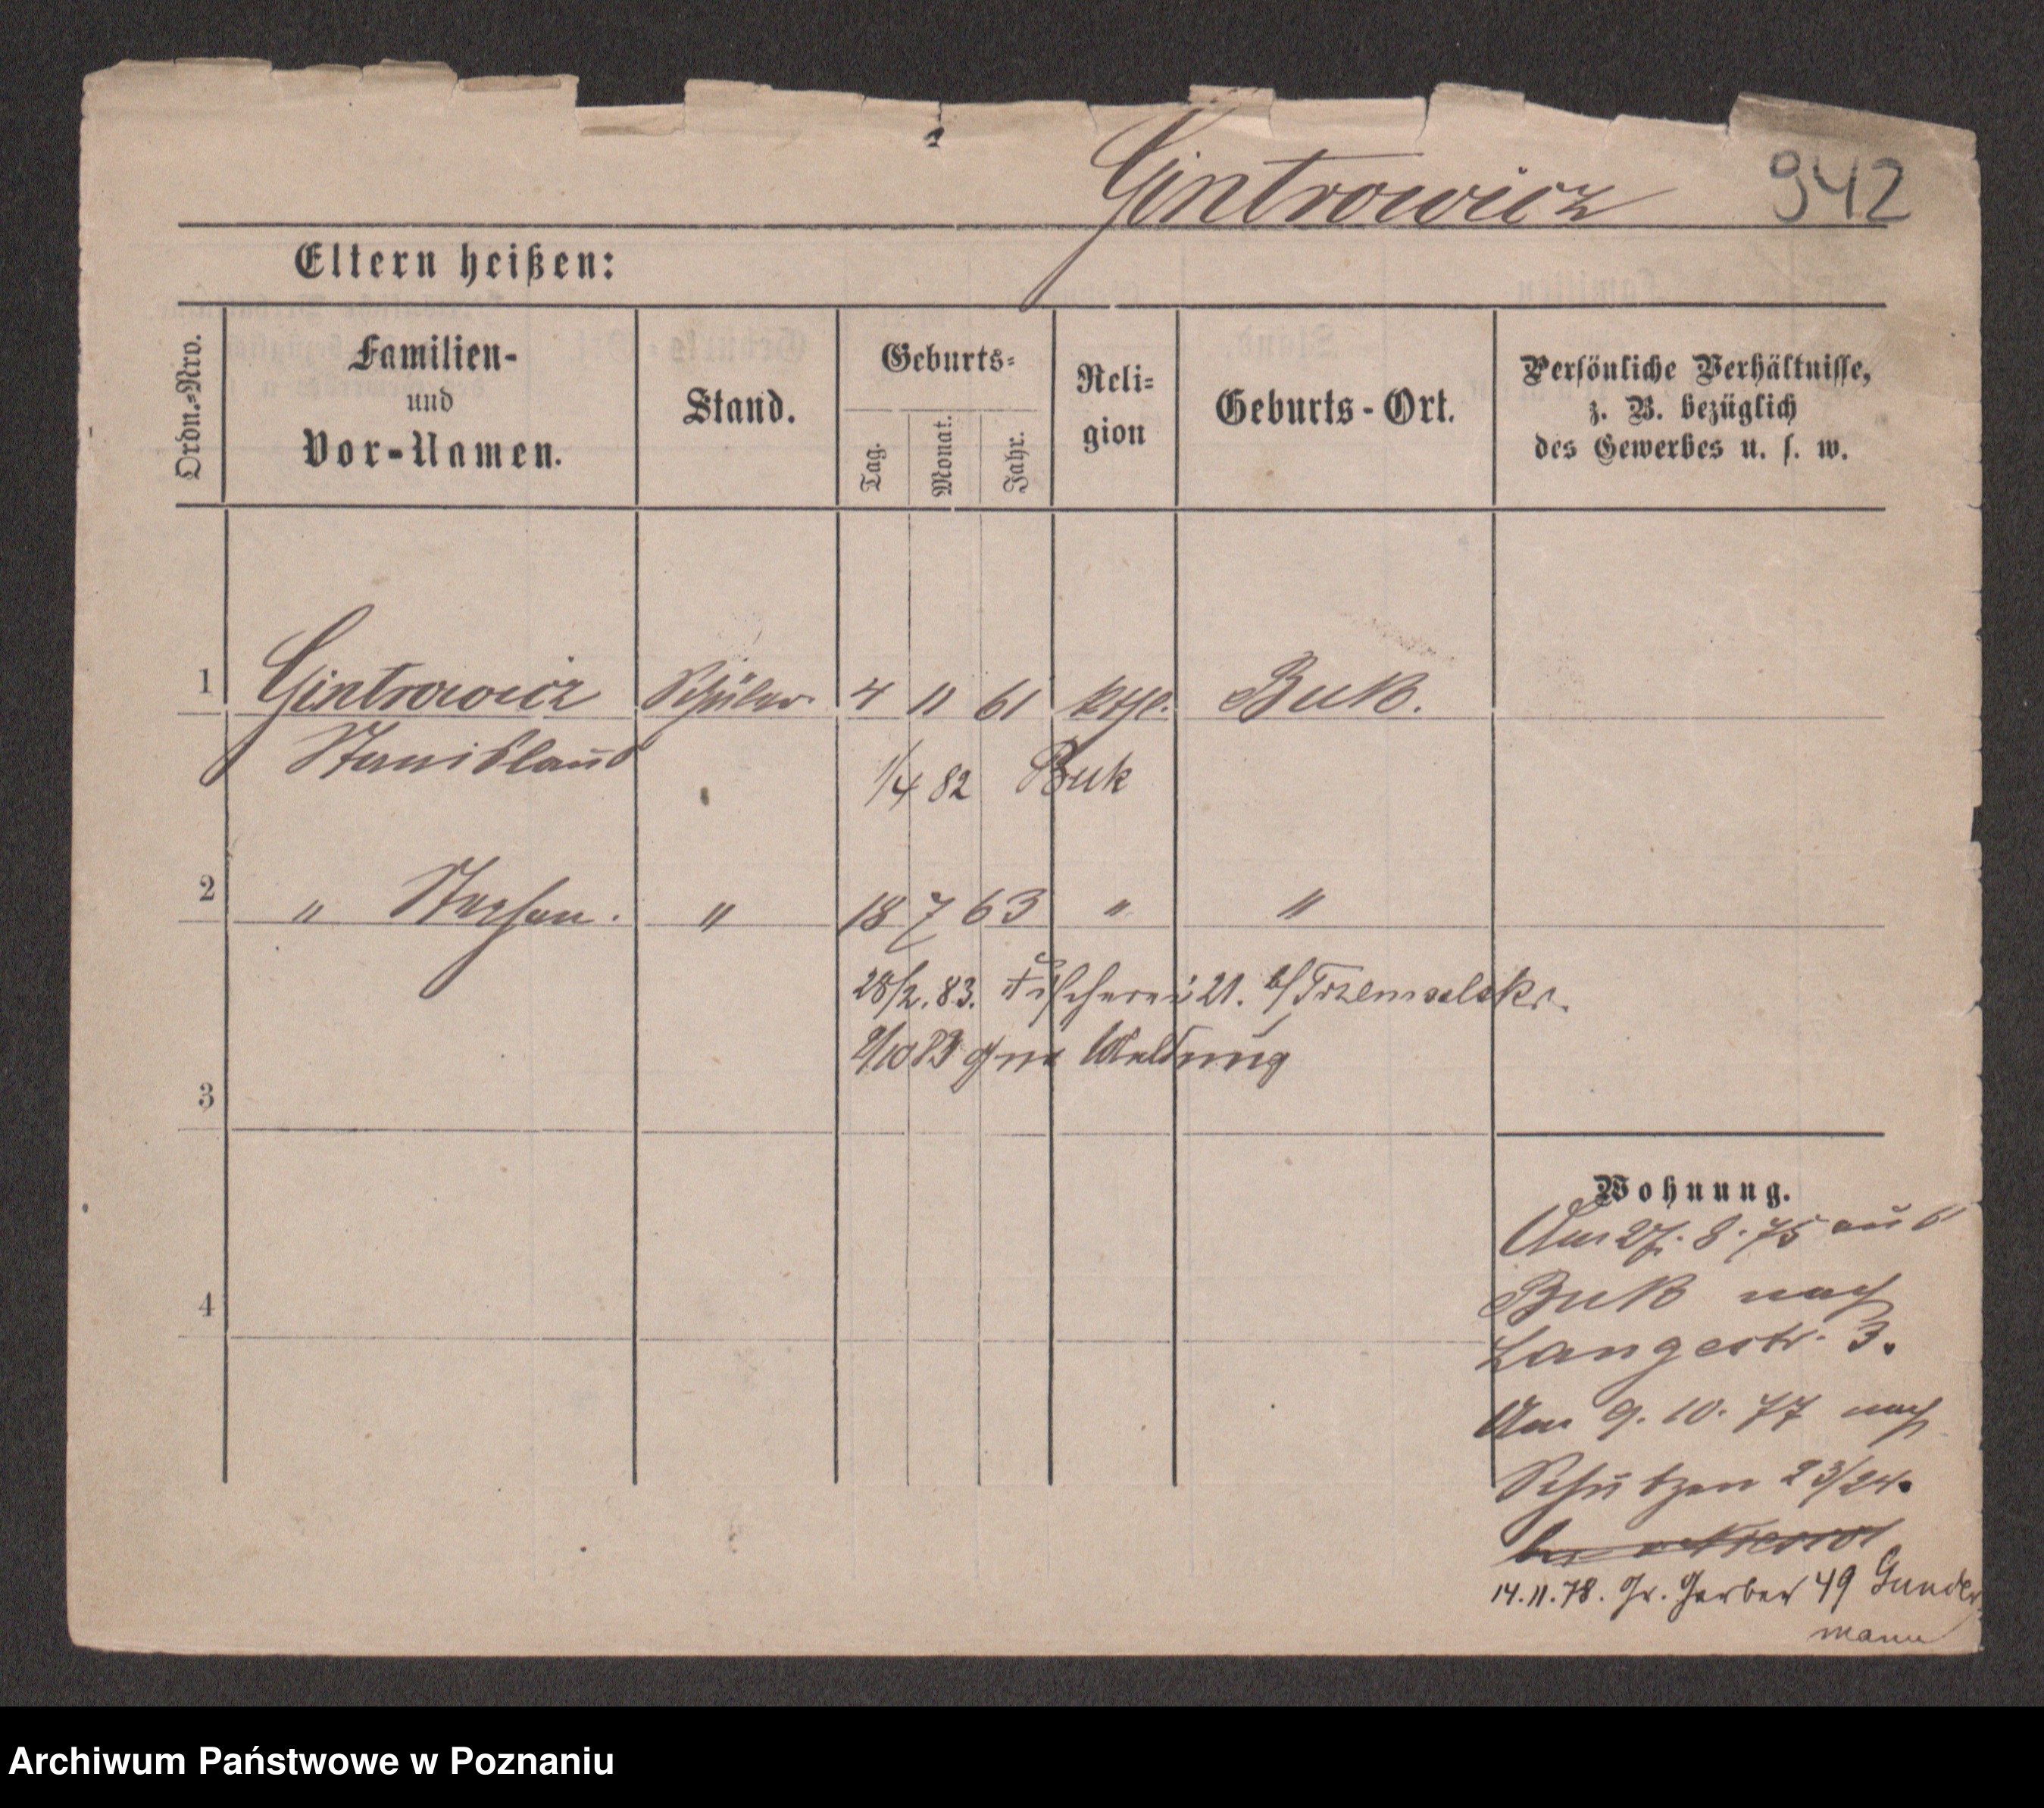 Gintrowicz 942
Eltern heißen:
Ordn.-Nro.
Familien-
und
Vor-Namen.
Stand.
Geburts-
Tag.
Monat.
Jahr.
Reli-
gion
Geburts-Ort.
Persönliche Verhältnisse,
z. B. bezüglich
des Gewerbes u. s. w.
1 Gintrowicz Schüler 4 11 61 kthl. Buk.
Stanislaus
1/4 82 Buk
2 " Stephan. " 18 7 63 " "
28/2. 83. Fischerei 21. b/
9/10 83 ohne Meldung
3
4
Wohnung.
Am 27. 8. 75 aus
Buk nach
Langestr. 3.
Am 9. 10. 77 nach
Schützen 23/24.
14.11.78. Gr. Gerber 49 Gunder
mann
Archiwum Państwowe w Poznaniu